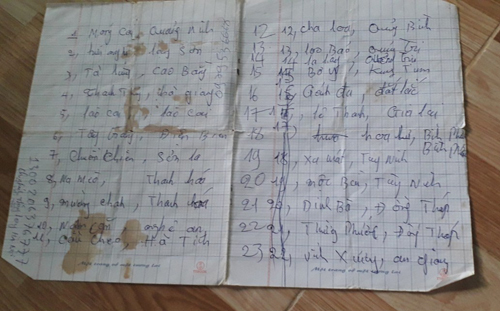 1, Móng Cái, Quảng Ninh
2, Hữu nghị, Lạng Sơn
3, Tà Lùng, Cao Bằng
4, Thanh Thủy, Hà Giang
5, Lào Cai, Lào Cai
6, Tây Trang, Điện Biên
7, Chiềng Khương, Sơn La
8, Na Mèo, Thanh hoá
9, Thanh hoá
10, Nậm Cắn, nghệ an,
11, Cầu Treo, Hà Tĩnh
12 12, cha loa, Quảng Bình
13 13, lao Bảo, Quảng Trị
14 14 la lay, Quảng Trị
15 15 Bờ y, Kon Tum
16 đắk lắc
17 lê Thanh, Gia lai
18 hoa lư, Bình Phước
19 18, xa mát, Tây Ninh
20 19 mộc Bài, Tây Ninh
21 20, Dinh Bà, Đồng Tháp
22 21, Thông Phước, Đồng Tháp
23 22, vĩnh Xương, an giang